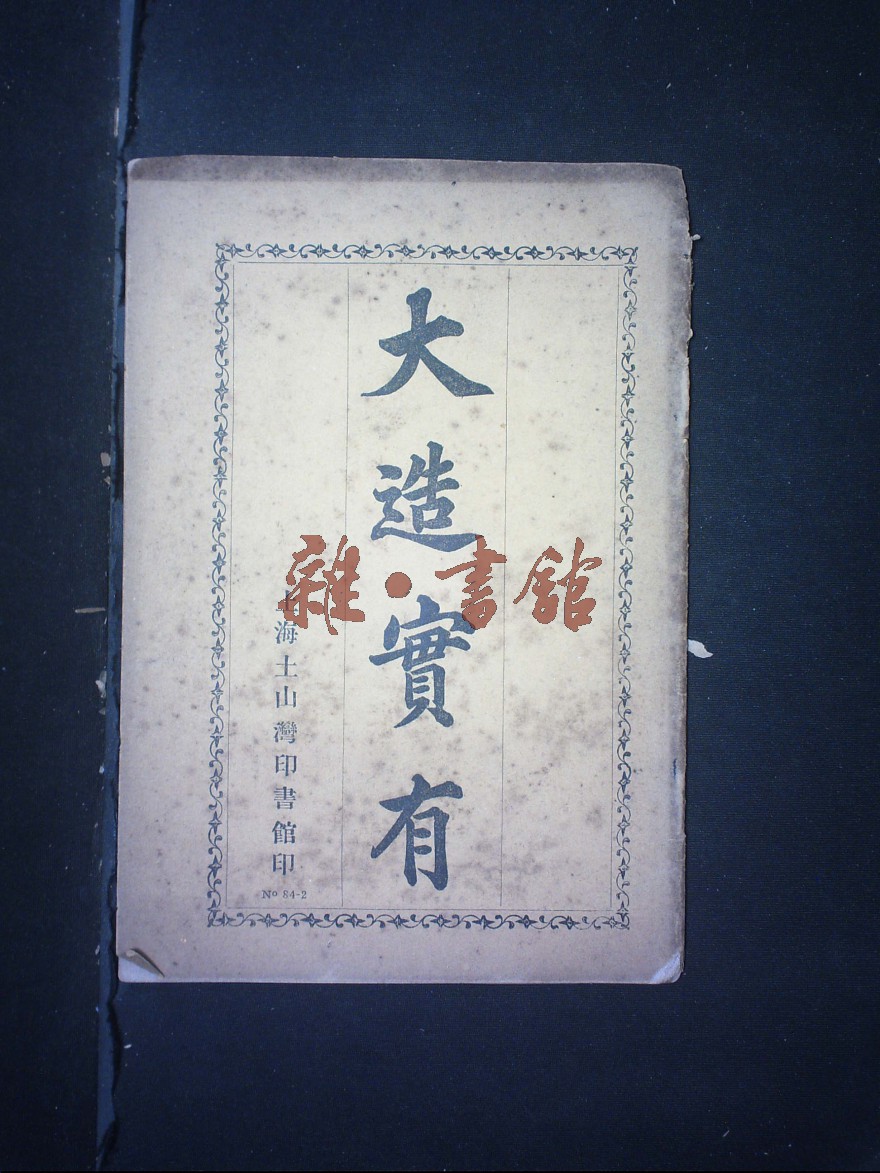 大造實有
上海土山灣印書館印
Nº 84-2
雜·書館